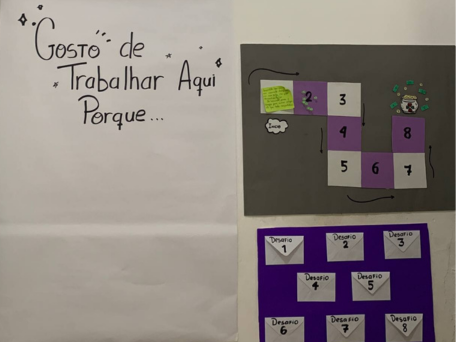 Gosto de
Trabalhar Aqui
Porque...
2
3
4
8
5
6
7
Desafio
1
Desafio
2
Desafio
3
Desafio
4
Desafio
5
Desafio
6
Desafio
7
Desafio
8